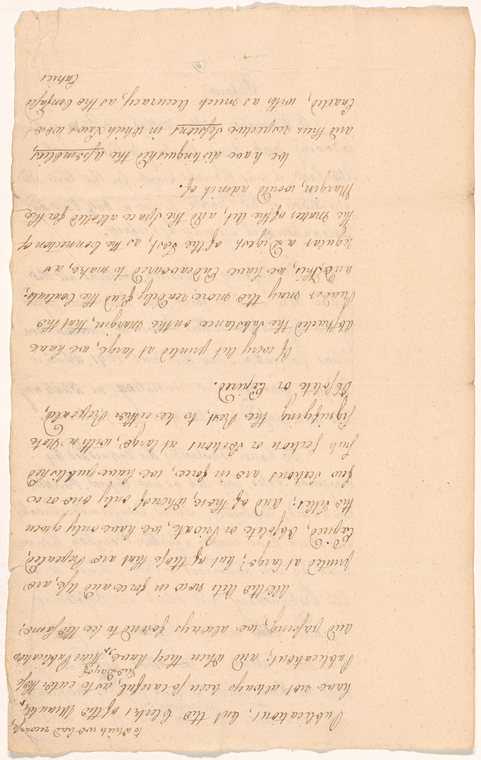 to which we had recourse,
Publications, but the Clerks of the Minutes,
have not always been so careful, as to enter those
the Days of
Publications; and when they have, their Publication
and passing, we always found to be the same.
All the Acts now in force and Use, are
printed at large; but of those that are Repealed,
Expired, Obsolete or Private, we have only given
the Titles; and of those, whereof only one or
few Sections are in force, we have published
such Section or Sections at large, with a Note
signifying the Rest, to be either Repealed,
Obsolete or Expired.
Of every Act printed at large we have
abstracted the Substance on the Margin, that the
Reader may the more readily find the Contents;
and this, we have Endeavoured to make, as
regular a Digest of the Text, as the Connection of
the matter of the Act, and the Space allotted for the
Margin, would admit of.
We have distinguished the Assemblies,
and their respective Sessions in which Laws were
Enacted, with as much Accuracy, as the Confused
Entries